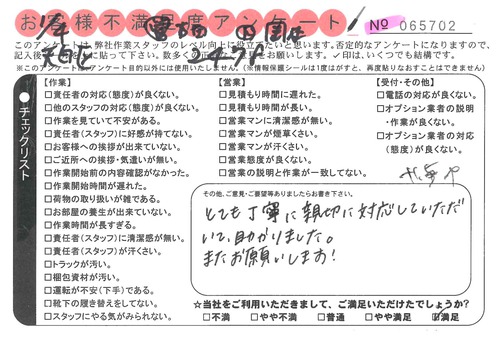 お客様不満足度アンケート No 065702
このアンケートは、弊社作業スタッフのレベル向上に役立てたいと思います。否定的なアンケートになりますので、
※このアンケートは、アンケート目的以外には使用いたしません。(※情報保護シールは1度がはがすと、再度貼りなおすことはできません)
●チェックリスト
【作業】
□責任者の対応(態度)が良くない。
□他のスタッフの対応(態度)が良くない。
□作業を見ていて不安がある。
□責任者(スタッフ)に好感が持てない。
□お客様への挨拶が出来ていない。
□ご近所への挨拶・気遣いが無い。
□作業開始前の内容確認がなかった。
□作業開始時間が遅れた。
□荷物の取り扱いが雑である。
□お部屋の養生が出来ていない。
□作業時間が長すぎる。
□責任者(スタッフ)に清潔感が無い。
□責任者(スタッフ)が汗くさい。
□トラックが汚い。
□梱包資材が汚い。
□運転が不安(下手)である。
□靴下の履き替えをしてない。
□スタッフにやる気がみられない。
【営業】
□見積もり時間に遅れた。
□見積もり時間が長い。
□営業マンに清潔感が無い。
□営業マンが煙草くさい。
□営業マンが汗くさい。
□営業態度が良くない。
□営業の説明と作業が一致してない。
【受付・その他】
□電話の対応が良くない。
□オプション業者の説明
・作業が良くない。
□オプション業者の対応
(態度)が良くない。
その他、ご意見・ご要望等ありましたらお書き下さい。
とても丁寧に親切に対応していただ
いて、助かりました。
またお願いします!
☆当社をご利用いただきまして、ご満足いただけたでしょうか?
□不満 □やや不満 □普通 □やや満足 ☑満足